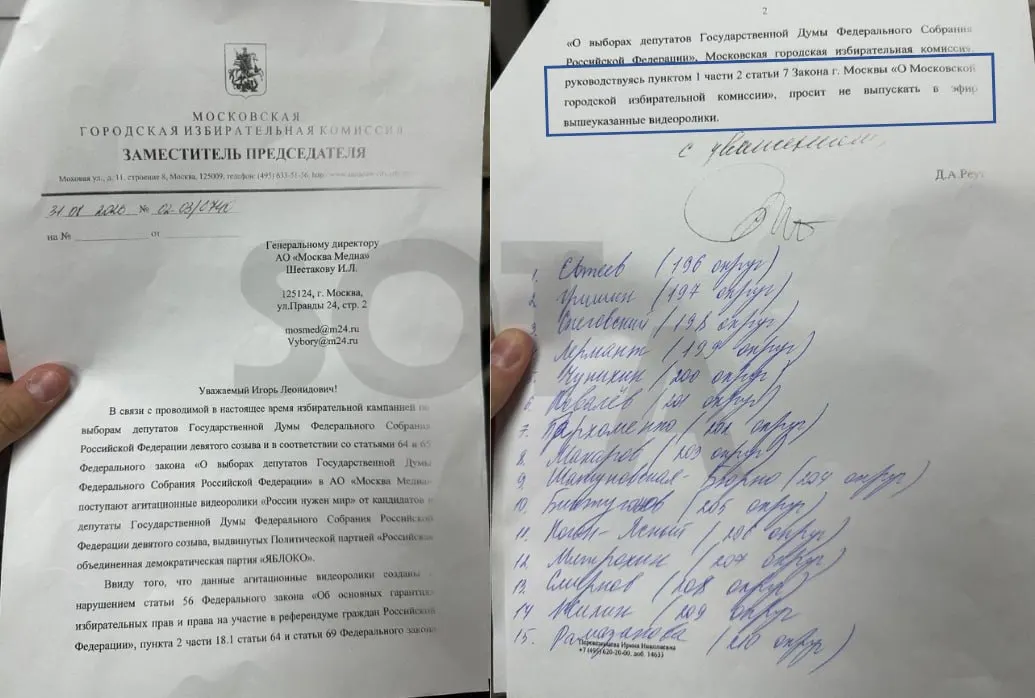 МОСКОВСКАЯ
ГОРОДСКАЯ ИЗБИРАТЕЛЬНАЯ КОМИССИЯ
ЗАМЕСТИТЕЛЬ ПРЕДСЕДАТЕЛЯ
Моховая ул., д. 11, строение 8, Москва, 125009, телефон (495) 633-51-56,
31 08 2026 № 02-03/
на № от
Генеральному директору
АО «Москва Медиа»
Шестакову И.Л.
125124, г. Москва,
ул.Правды 24, стр. 2
mosmed@m24.ru
Vybory@m24.ru
Уважаемый Игорь Леонидович!
В связи с проводимой в настоящее время избирательной кампанией по
выборам депутатов Государственной Думы Федерального Собрания
Российской Федерации девятого созыва и в соответствии со статьями 64 и 65
Федерального закона «О выборах депутатов Государственной Думы
Федерального Собрания Российской Федерации» в АО «Москва Медиа»
поступают агитационные видеоролики «России нужен мир» от кандидатов в
депутаты Государственной Думы Федерального Собрания Российской
Федерации девятого созыва, выдвинутых Политической партией «Российская
объединенная демократическая партия «ЯБЛОКО».
Ввиду того, что данные агитационные видеоролики созданы с
нарушением статьи 56 Федерального закона «Об основных гарантиях
избирательных прав и права на участие в референдуме граждан Российской
Федерации», пункта 2 части 18.1 статьи 64 и статьи 69 Федерального закона
2
«О выборах депутатов Государственной Думы Федерального Собрания
Российской Федерации», Московская городская избирательная комиссия,
руководствуясь пунктом 1 части 2 статьи 7 Закона г. Москвы «О Московской
городской избирательной комиссии», просит не выпускать в эфир
вышеуказанные видеоролики.
с уважением,
Д.А.Реут
1. Евтеев (196 округ)
2. Гришин (197 округ)
3. Снеговский (198 округ)
Лермант (199 округ)
Чупихин (200 округ)
6. Ковалёв (201 округ)
7. Пархоменко (202 округ)
8. Макаров (203 округ)
9. (204 округ)
10. (205 округ)
11. Коган-Ясный (206 округ)
12 Митрохин (207 округ)
13. Смирнов (208 округ)
14 Жилин (209 округ
15. Рамазанова (210 округ)
Ирина Николаевна
+7 (495) 620-20-00, доб. 14633
SOTA